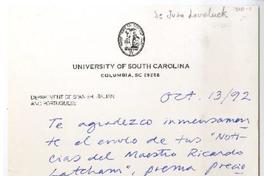 De Juan Loveluck
UNIVERSITY OF SOUTH CAROLINA
COLUMBIA, SC 29208
DEPARTMENT OF SPANISH, ITALIAN
AND PORTUGUESE
Oct. 13/92
Te agradezco inmensamen
te el envío de tus "Noti-
cias del Maestro Ricardo
Latcham",